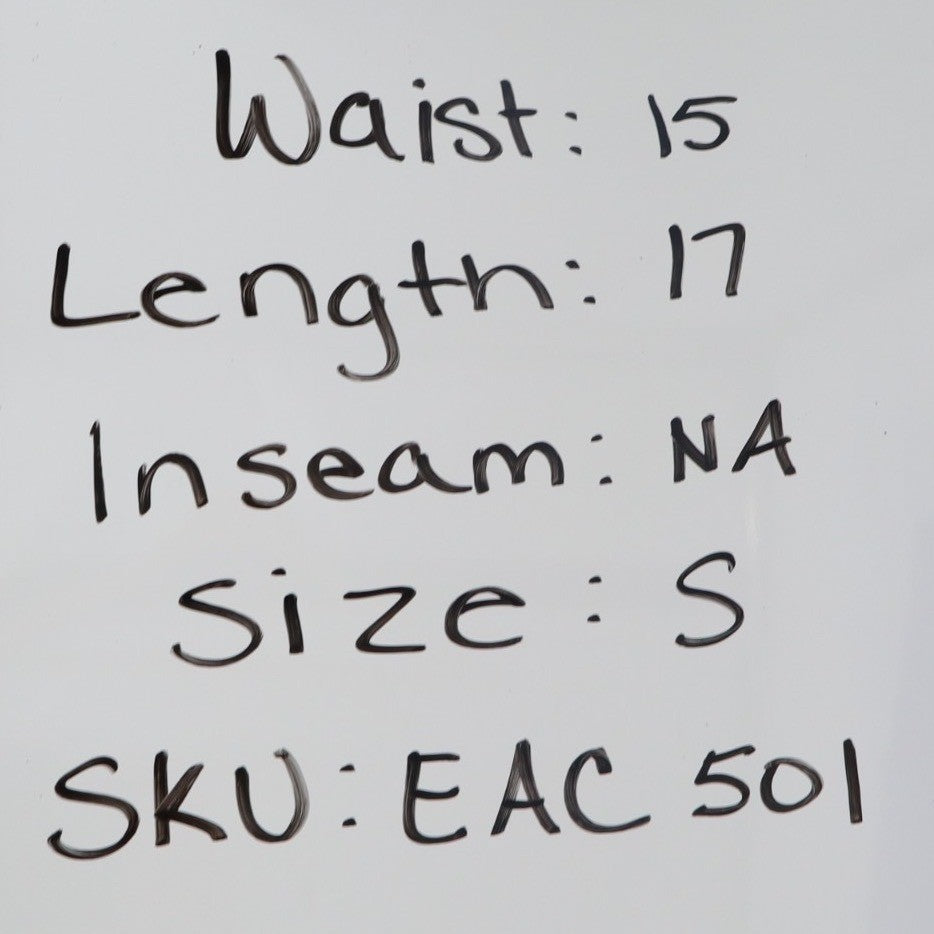 Waist: 15
Length: 17
Inseam: NA
Size: S
SKU: EAC 501